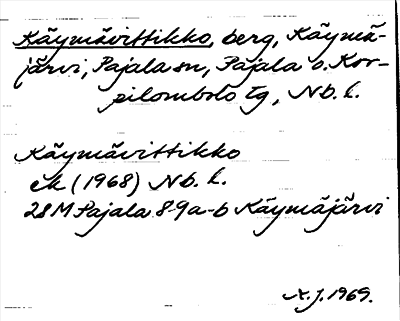 Käymävittikko, berg, Käymä-
järvi, Pajala sn, Pajala o. Kor-
pilombolo tg, Nb. l.
Käymävittikko
ek (1968) Nb. l.
28M Pajala 8-9a-b Käymäjärvi
A. J. 1969.